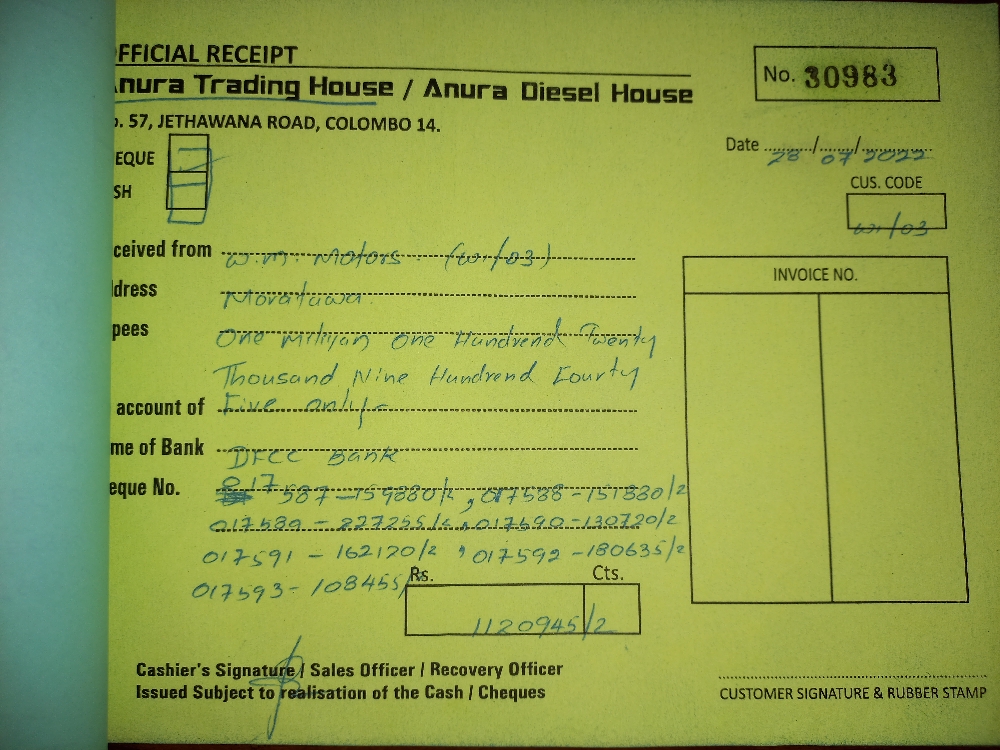 OFFICIAL RECEIPT
Anura Trading House / Anura Diesel House
No. 30983
o. 57, JETHAWANA ROAD, COLOMBO 14.
Date 28/07/2022
EQUE
SH
CUS. CODE
wi/03
ceived from W.M. Motors. (wi/03)
ddress Moratuwa.
pees One Miliyan One Hundrend Twenty
Thousand Nine Hundrend Fourty
account of Five only-
me of Bank DFCC Bank
eque No. 017587-159880/2, 017588-151880/2
017589-227255/2, 017590-130720/2
017591-162120/2, 017592-180635/2
017593-108455/
Rs. Cts.
1120945/2
INVOICE NO.
Cashier's Signature / Sales Officer / Recovery Officer
Issued Subject to realisation of the Cash / Cheques
CUSTOMER SIGNATURE & RUBBER STAMP